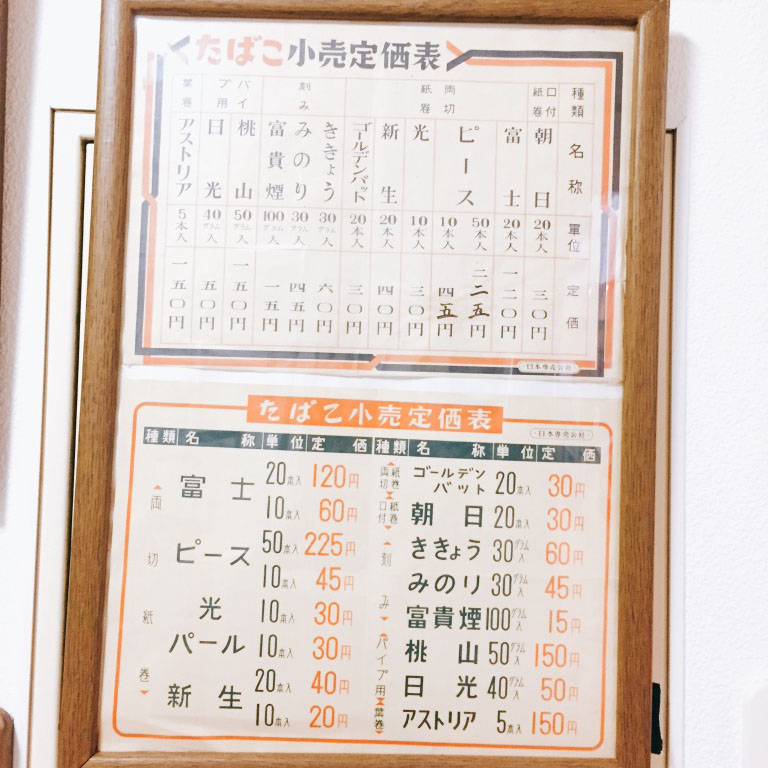 たばこ小売定価表
種類 名称 單位 定価
口付紙巻 朝日 20本入 三〇円
両切紙巻 富士 20本入 一二〇円
ピース 50本入 二二五円
10本入 四五円
光 10本入 三〇円
新生 20本入 四〇円
ゴールデンバット 20本入 三〇円
刻み ききょう 30グラム入 六〇円
みのり 30グラム入 四五円
富貴煙 100グラム入 一五円
パイプ用 桃山 50グラム入 一五〇円
日光 40グラム入 五〇円
葉巻 アストリア 5本入 一五〇円
日本専売公社
たばこ小売定価表
日本専売公社
種類 名称 単位 定価
両切紙巻
富士 20本入 120円
10本入 60円
ピース 50本入 225円
10本入 45円
光 10本入 30円
パール 10本入 30円
新生 20本入 40円
10本入 20円
種類 名称 単位 定価
両切紙巻 ゴールデンバット 20本入 30円
口付紙巻 朝日 20本入 30円
刻み ききょう 30グラム入 60円
みのり 30グラム入 45円
富貴煙 100グラム入 15円
パイプ用 桃山 50グラム入 150円
日光 40グラム入 50円
葉巻 アストリア 5本入 150円